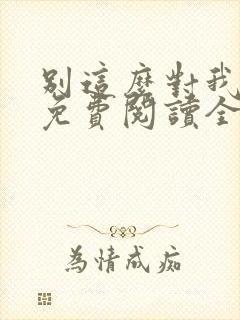 別這麼對我
免費閱讀全
為情成痴